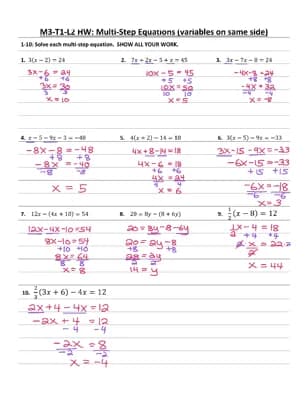 M3-T1-L2 HW: Multi-Step Equations (variables on same side)
1-10: Solve each multi-step equation. SHOW ALL YOUR WORK.
1. 3(x − 2) = 24
3x − 6 = 24
+6 +6
3x = 30
3 3
x = 10
2. 7x + 2x − 5 + x = 45
10x − 5 = 45
+5 +5
10x = 50
10 10
x = 5
3. 3x − 7x − 8 = 24
-4x − 8 = 24
+8 +8
-4x = 32
-4 -4
x = -8
4. x − 5 − 9x − 3 = −48
-8x − 8 = -48
+8 +8
-8x = -40
-8 -8
x = 5
5. 4(x + 2) − 14 = 18
4x + 8 − 14 = 18
4x − 6 = 18
+6 +6
4x = 24
4 4
x = 6
6. 3(x − 5) − 9x = −33
3x − 15 − 9x = -33
-6x − 15 = -33
+15 +15
-6x = -18
-6 -6
x = 3
7. 12x − (4x + 10) = 54
12x − 4x − 10 = 54
8x − 10 = 54
+10 +10
8x = 64
8 8
x = 8
8. 20 = 8y − (8 + 6y)
20 = 8y − 8 − 6y
20 = 2y − 8
+8 +8
28 = 2y
2 2
14 = y
9. ½(x − 8) = 12
½x − 4 = 18
+4 +4
x = 22
x = 44
10. ⅔(3x + 6) − 4x = 12
2x + 4 − 4x = 12
-2x + 4 = 12
-4 -4
-2x = 8
-2 -2
x = -4